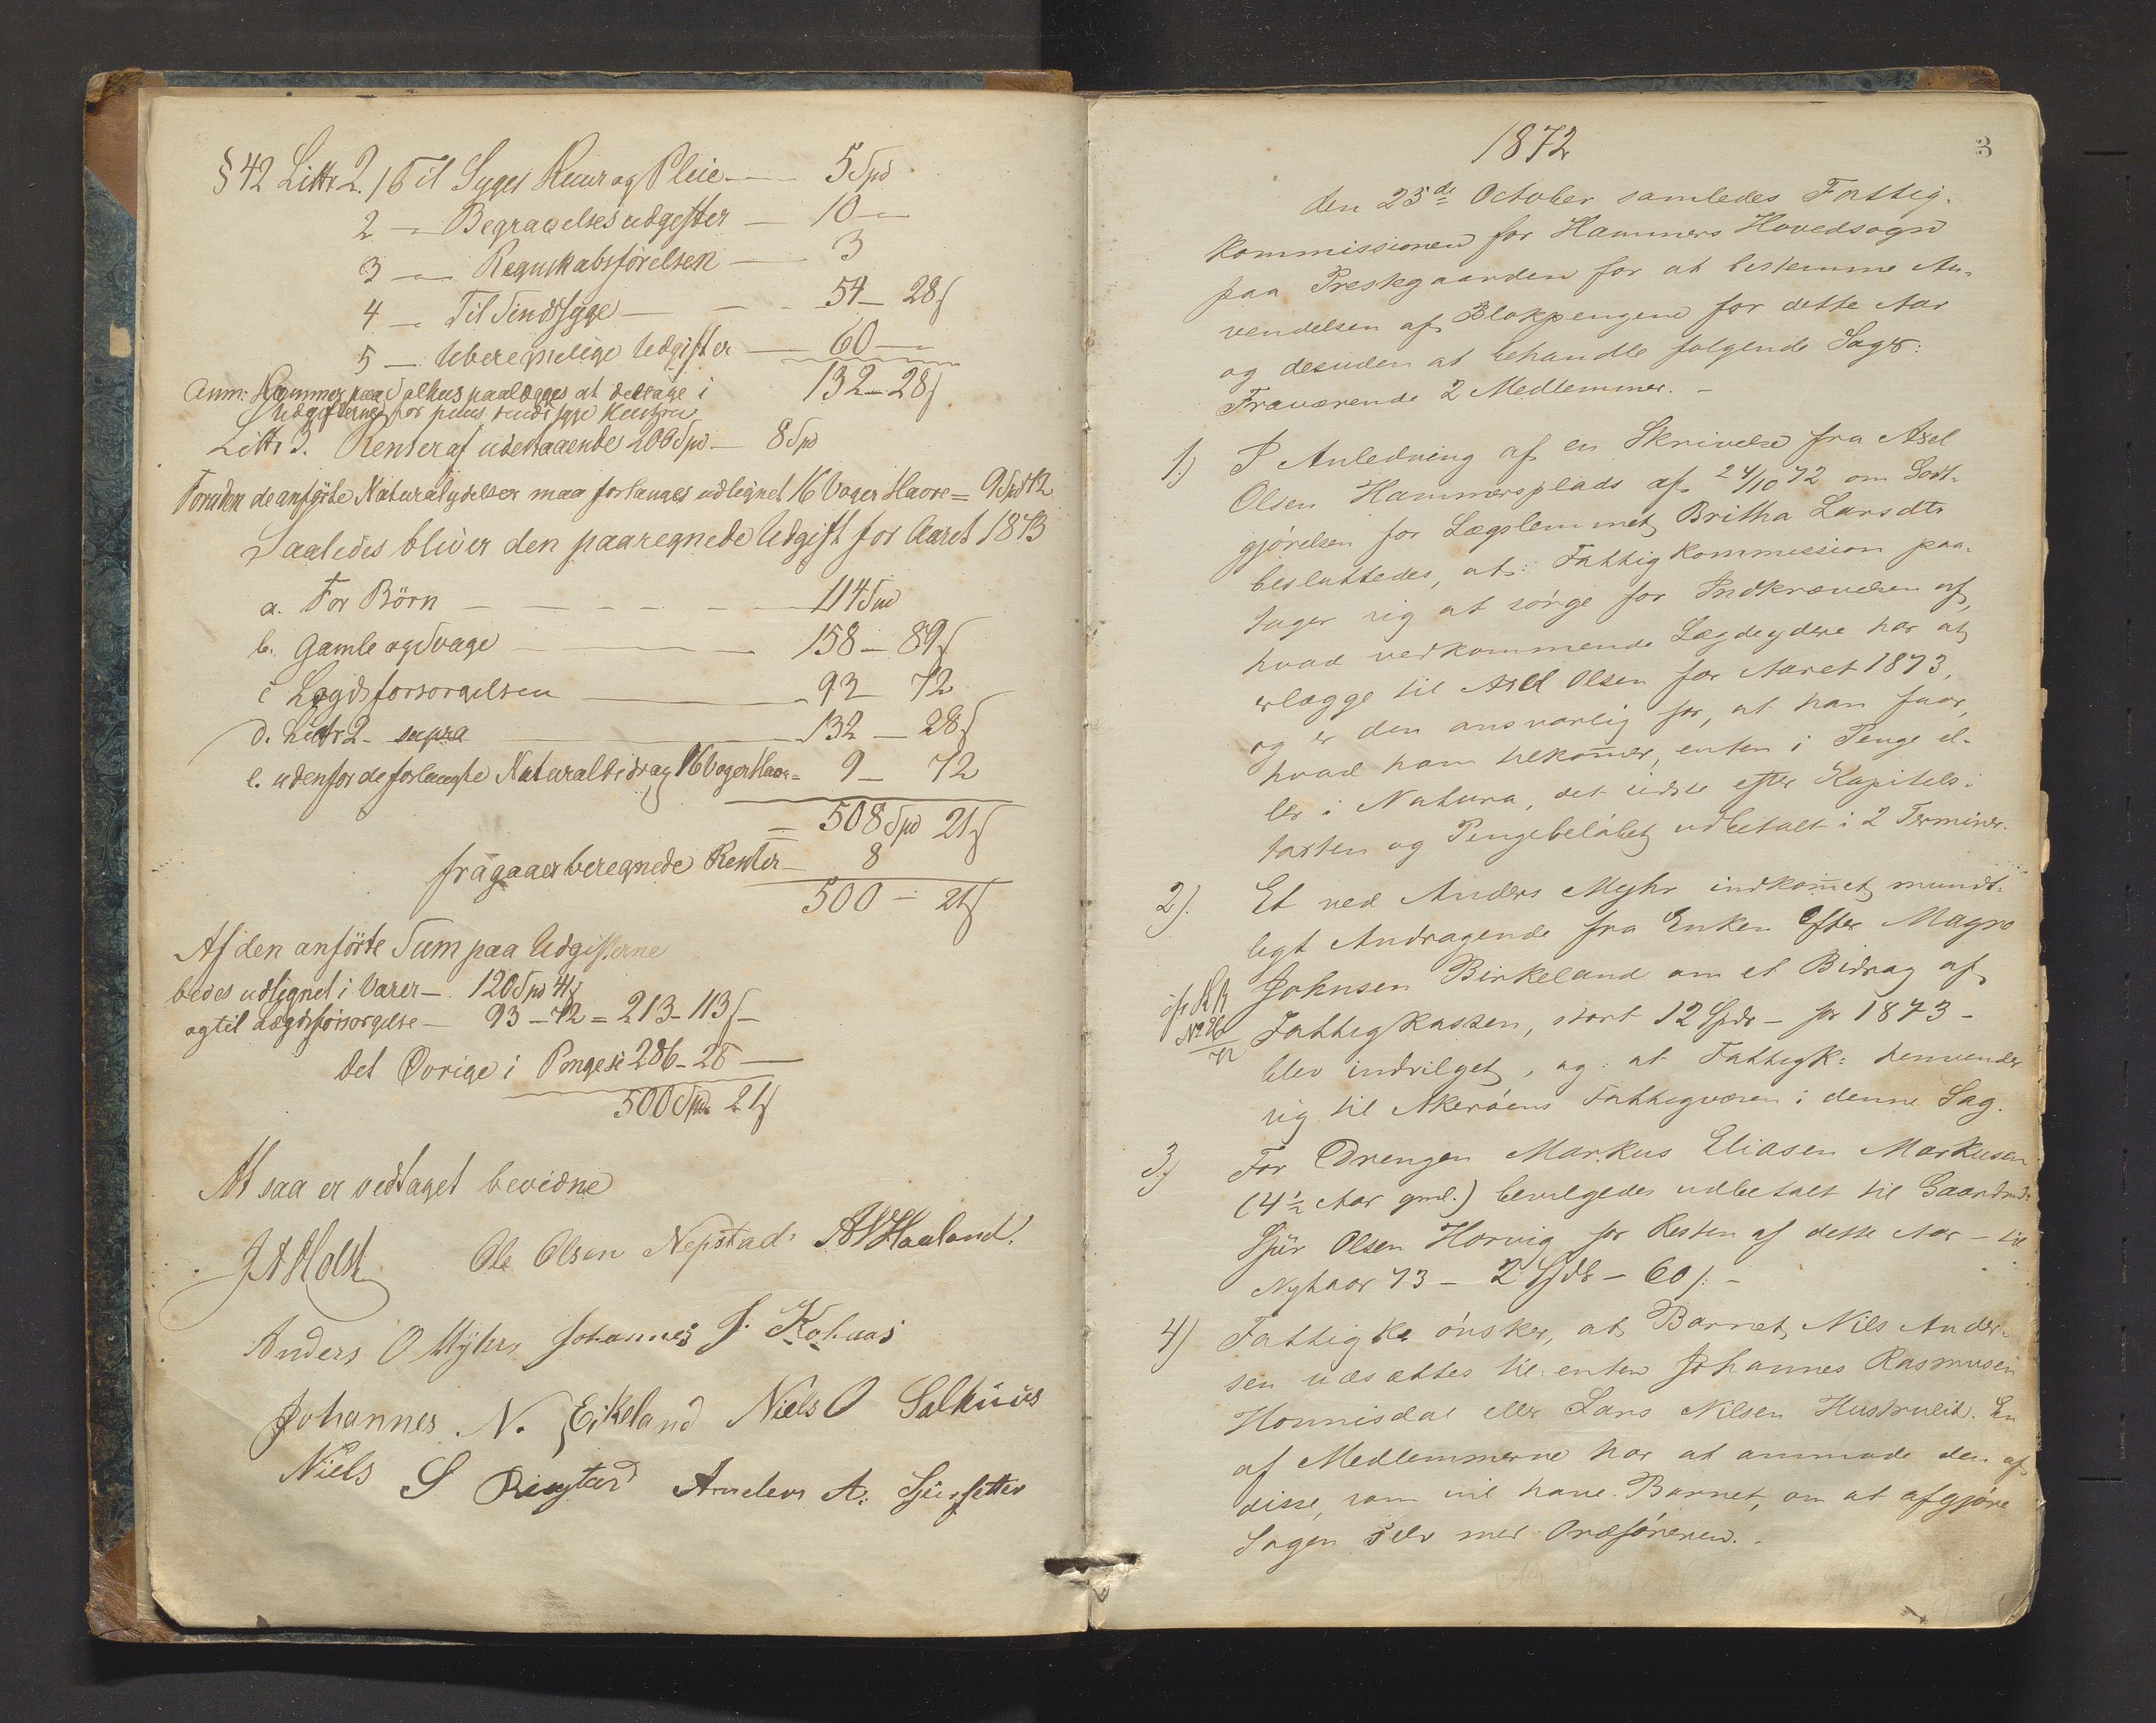 § 42 Littr 2. 1 Til Syges Kuur og Pleie — 5 Spd
2 — Begravelsesudgifter — 10 —
3 — Regnskabsførelsen — 3
4 — Til Sindssyge — 54 — 28 ſ
5 — Uberegnelige Udgifter — 60 —
132 — 28 ſ
Anm: Hammer paa Salhus paalægges at deltage i
Udgifterne for sindssyge
Littr 3. Renter af udestaaende 200 Spd — 8 Spd
Foruden de anførte Naturalydelser maa forlanges udlignet 16 Voger Havre = 9 Spd 72
Saaledes bliver den paaregnede Udgift for Aaret 1873
a. For Børn — 114 Spd
b. Gamle og Svage — 158 — 89 ſ
c Lægdsforsorgelsen — 93 — 72
d. Littr 2 — supra — 132 — 28 ſ
e. udenfor de forlangte Naturalbidrag 16 Voger Havre = 9 — 72
= 508 Spd 21 ſ
fragaaer beregnede Renter — 8
500 — 21 ſ
Af den anførte Sum paa Udgifterne
bedes udlignet i Varer — 120 Spd 41 ſ
og til Lægdsforsorgelse — 93 — 72 = 213 — 113 ſ —
Det Øvrige i Penge 286 — 28 —
500 Spd 21 ſ
At saa er vedtaget bevidne
J A Holst Ole Olsen Nepstad. A V Haaland.
Anders O Myhr, Johannes J. Kohaas
Johannes N. Eikeland Niels O Salhuus
Niels S Ringstad Anders A.
1872
3
den 25de October samledes Fattig-
kommissionen for Hammers Hovedsogn
paa Prestegaarden for at bestemme An-
vendelsen af Blokpengene for dette Aar
og desuden at behandle følgende Sager:
Fraværende 2 Medlemmer. —
1.) I Anledning af en Skrivelse fra Axel
Olsen Hammersplads af 24/10 72 om Godt-
gjørelsen for Lægslemmet Britha Larsdtr
besluttedes, at: Fattigkommission paa-
tager sig at sørge for Indkrævelsen af,
hvad vedkommende Lægdeydere har at
erlægge til Axel Olsen for Aaret 1873,
og er den ansvarlig for, at han faar,
hvad ham tilkom̄er, enten i Penge el-
ler i Natura, det sidste efter Kapitels-
taxten og Pengebeløbet udbetalt i 2 Terminer.
2). Et ved Anders Myhr indkom̄et mundt-
ligt Andragende fra Enken efter Magne
Johnsen Birkeland om et Bidrag af
Fattigkassen, stort 12 Spdr — for 1873 —
blev indvilget, og: at Fattigk: henvender
sig til Akerøens Fattigvæsen i denne Sag.
3.) For Drengen Markus Eliasen Markusen
(4½ Aar gml.) bevilgedes udbetalt til Gaardmd:
Sjur Olsen Horvig for Resten af dette Aar — til
Nytaar 73 — 2 Spdlr — 60 ſ. —
4) Fattigk: ønsker, at Barnet Nils Ander-
sen udsættes til enten Johannes Rasmusen
Honnisdal eller Lars Nilsen En
af Medlemmerne har at anmode den af
disse, som vil have Barnet, om at afgjøre
Sagen selv med Ordføreren. .